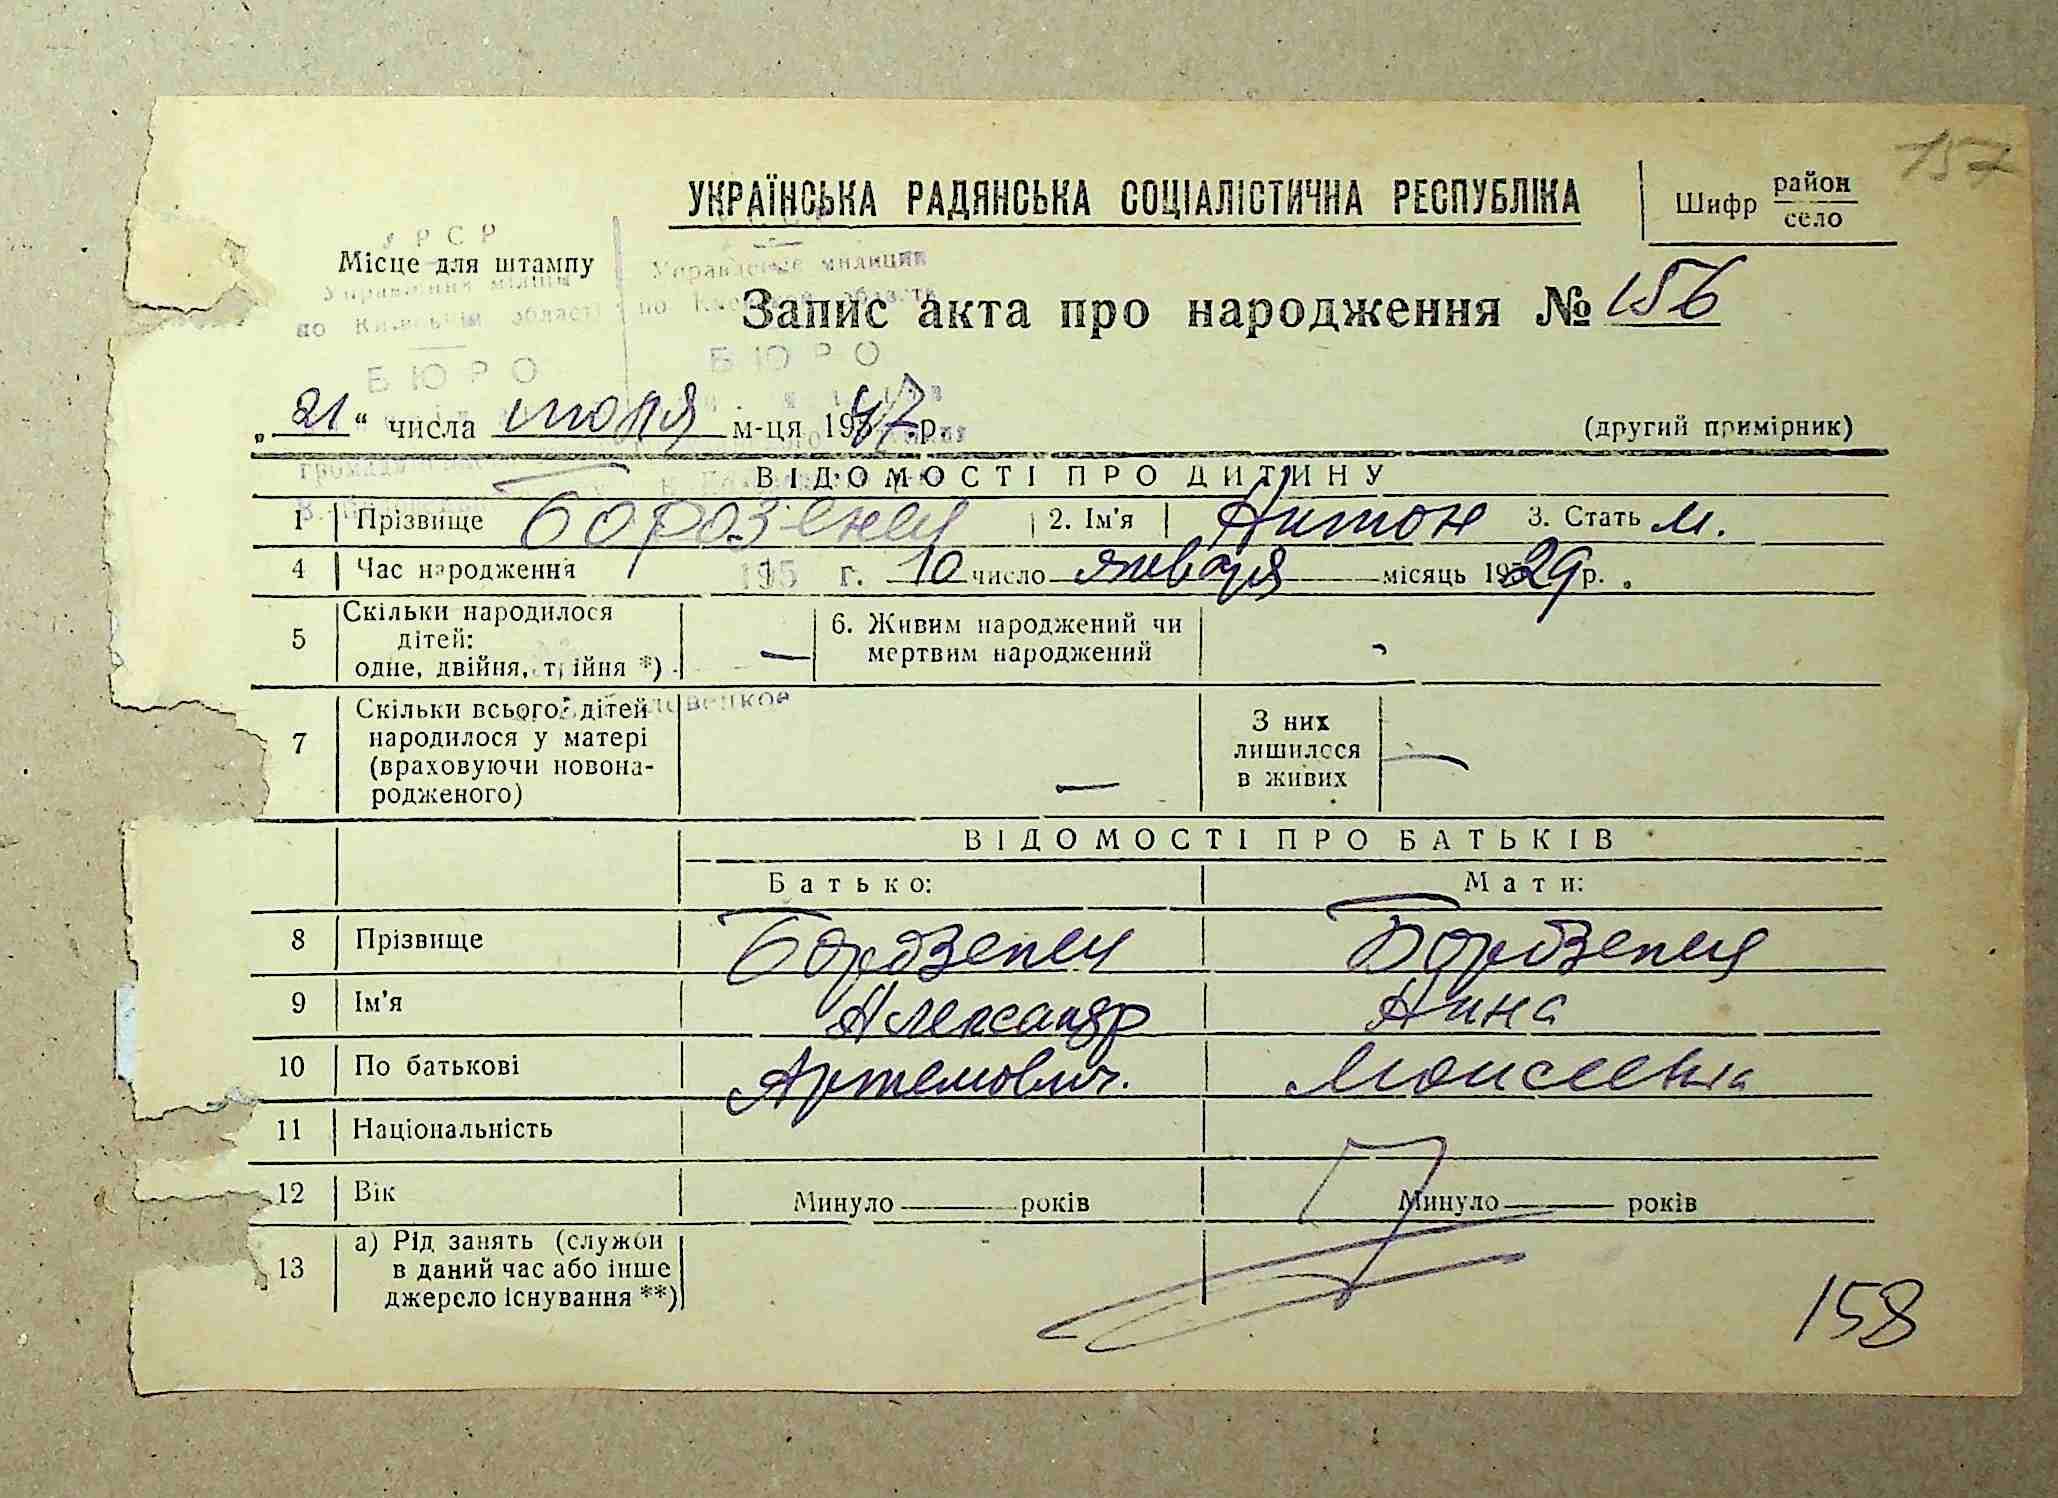 157
УКРАЇНСЬКА РАДЯНСЬКА СОЦІАЛІСТИЧНА РЕСПУБЛІКА
Шифр район
село
УРСР
Місце для штампу
Управління міліції
по Київській області
БЮРО
Управление милиции
по области
БЮРО
Запис акта про народження № 156
„21“ числа июля м-ця 1947 р.
(другий примірник)
ВІДОМОСТІ ПРО ДИТИНУ
1 Прізвище 2. Ім'я Антон 3. Стать М.
4 Час народження 195 г. 10 число января місяць 1929 р.
5 Скільки народилося дітей: одне, двійня, трійня *) —
6. Живим народжений чи мертвим народжений -
7 Скільки всього дітей народилося у матері (враховуючи новонародженого) —
З них лишилося в живих —
ВІДОМОСТІ ПРО БАТЬКІВ
Батько: Мати:
8 Прізвище
9 Ім'я Александр Анна
10 По батькові Артемович. Моисеевна
11 Національність
12 Вік Минуло — років Минуло — років
13 а) Рід занять (служби в даний час або інше джерело існування **)
158